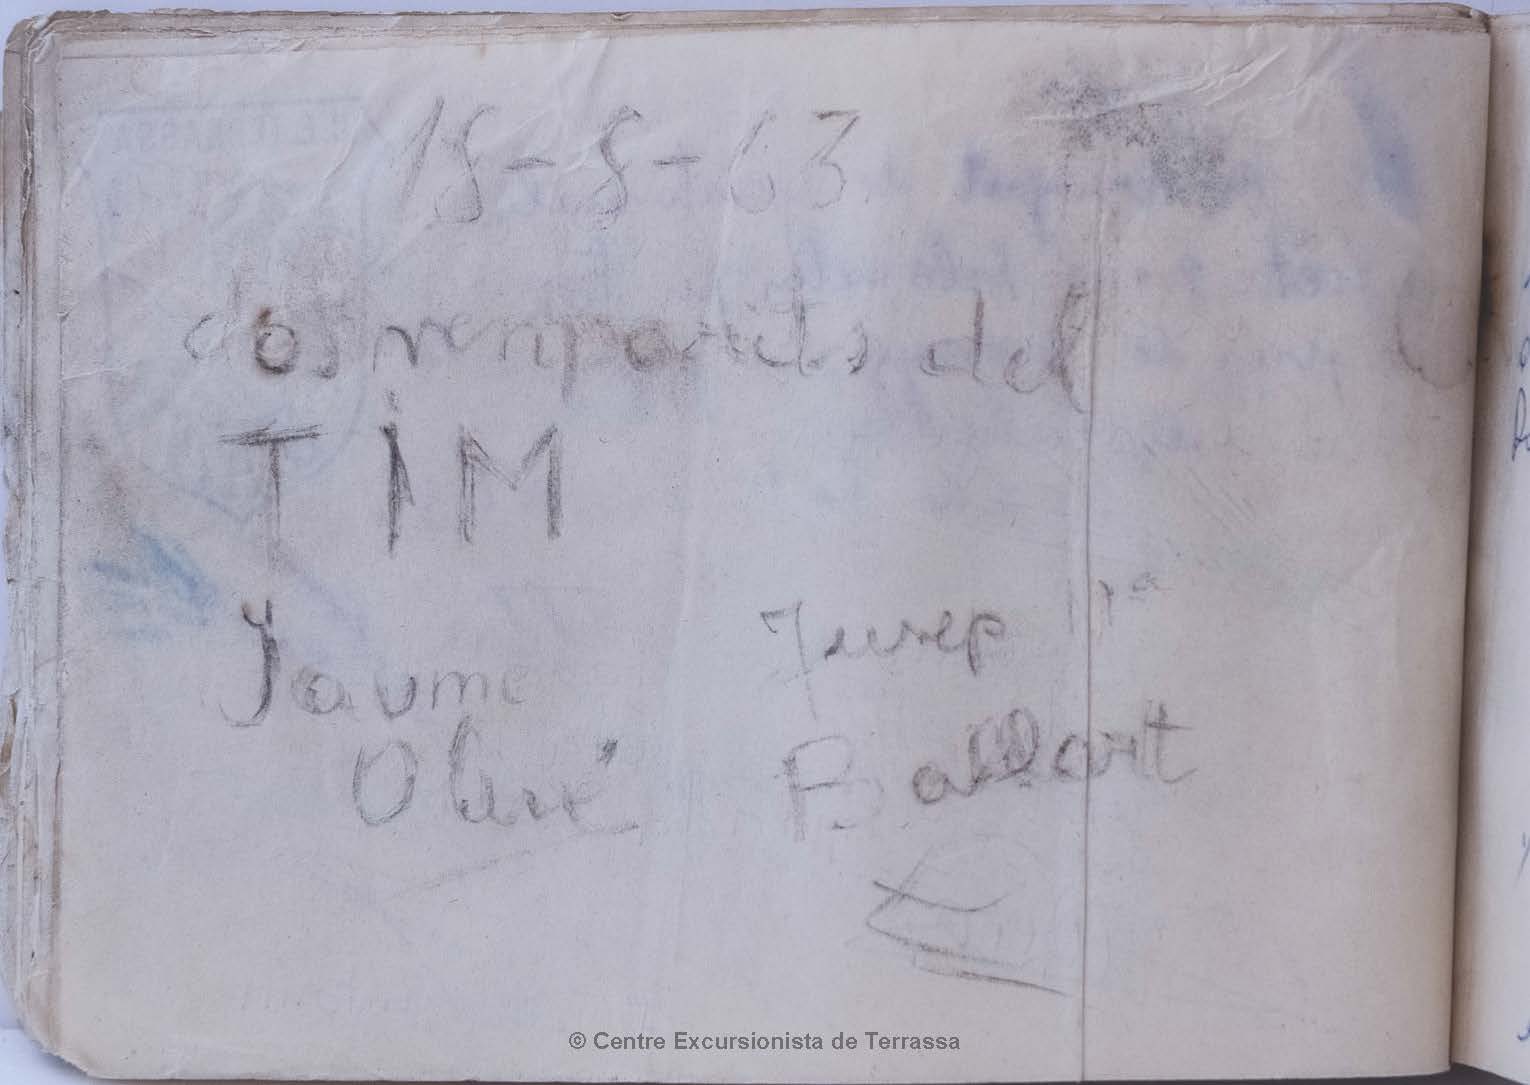 18-8-63
dos del
TIM
Jaume Josep Mª
Olivé Ballart
© Centre Excursionista de Terrassa